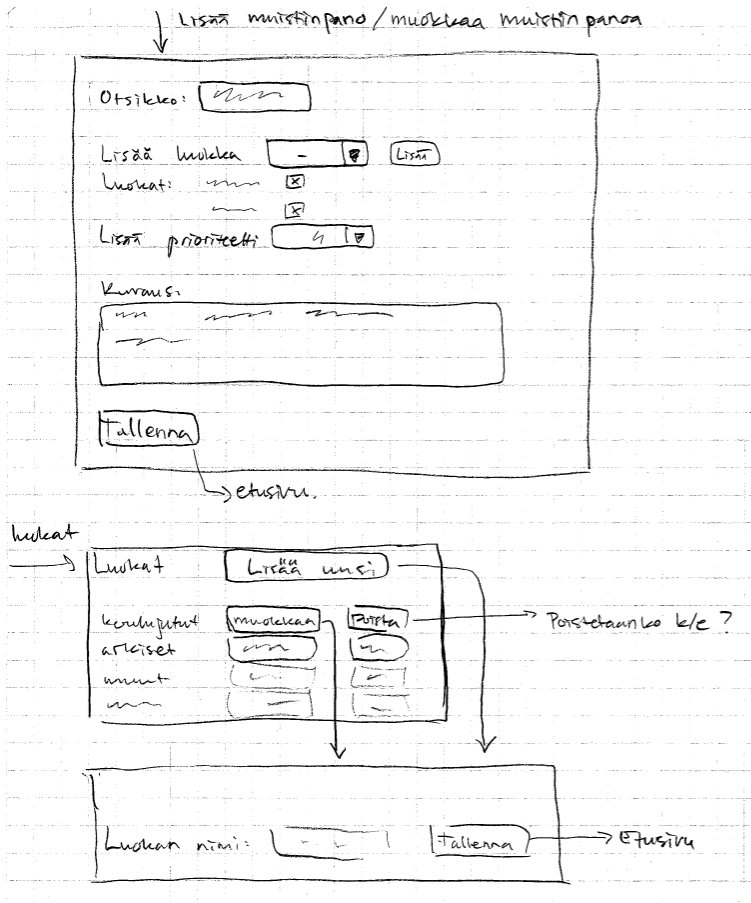 Lisää muistiinpano/muokkaa muistiinpanoa
Otsikko:
Lisää luokka - Lisää
Luokat: x
x
Lisää prioriteetti 4
Kuvaus:
Tallenna
etusivu.
luokat
Luokat Lisää uusi
koulujutut muokkaa Poista Poistetaanko k/e?
arkiset
muut
Luokan nimi: Tallenna Etusivu